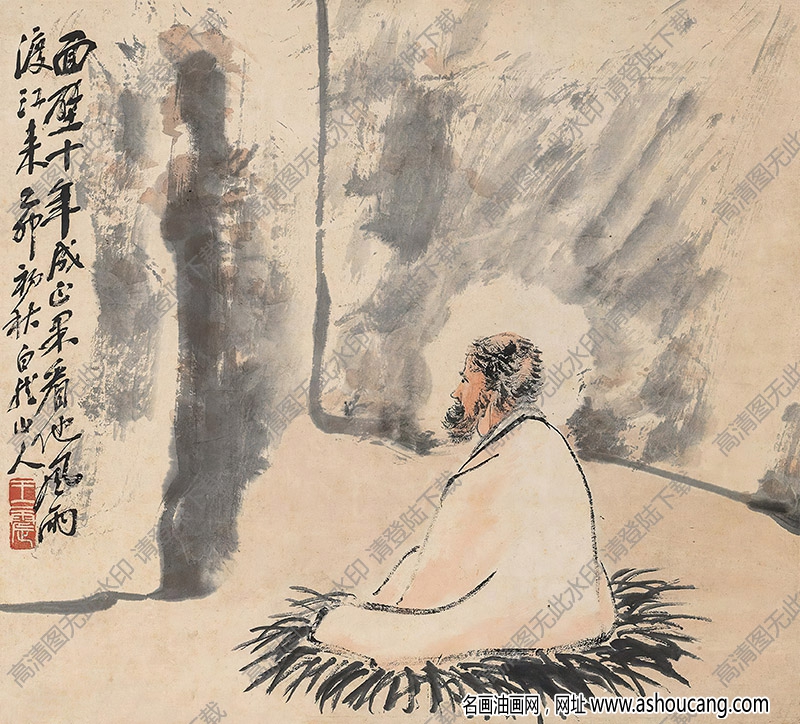 面壁十年成正果看他風雨
渡江来乙卯初秋白龍山人
王震
高清图无此水印 请登陆下载
名画油画网，网址 www.ashoucang.com